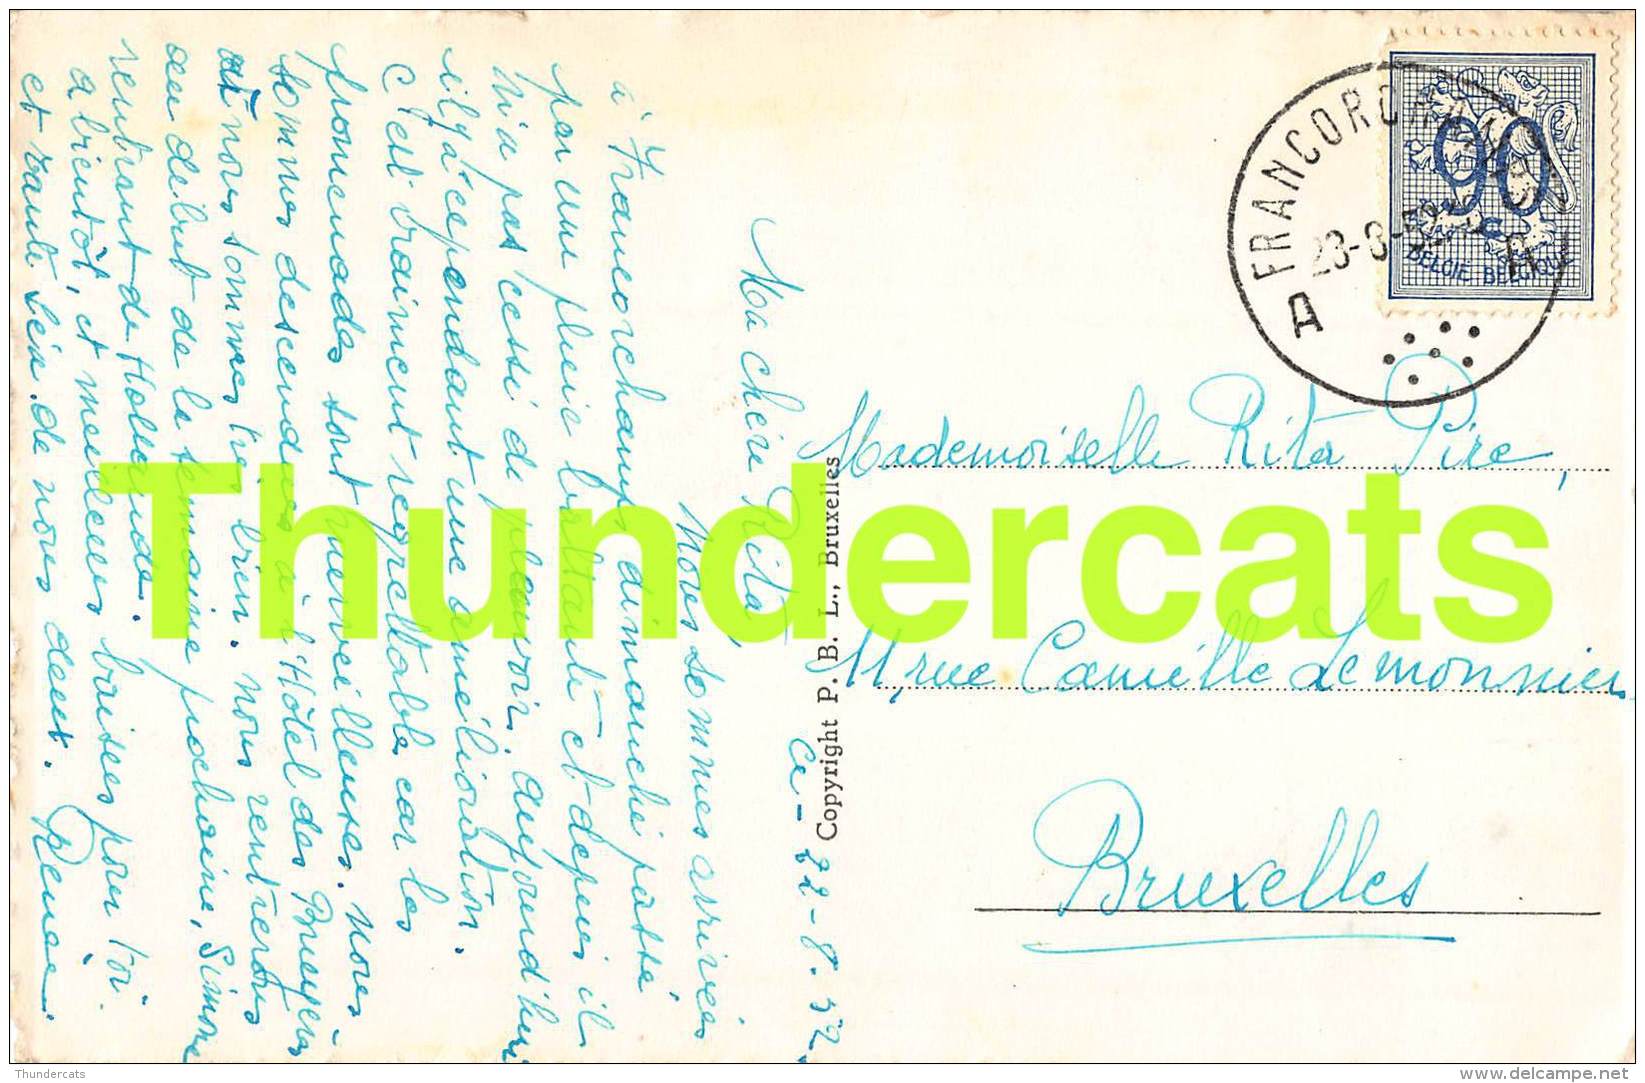 Ce - 22-8.52.
Ma chère Rita,
Nous sommes arrivées
à Francorchamps dimanche passé
par une pluie battante et depuis il
n'a pas cessé de pleuvoir. aujourd'hui
il y a cependant une amélioration.
C'est vraiment regrettable car les
promenades sont merveilleuses. nous
sommes descendues à l'Hôtel des Bruyères
et nous sommes très bien. nous rentrerons
au début de la semaine prochaine, Simone
rentrant de Hollande.
à bientôt, et meilleurs baisers pour toi
et tante Léa de nous deux. Renée.
Copyright P. B. L., Bruxelles
FRANCORCHAMPS
A A
23-8-52
90
c
BELGIE BELGIQUE
Mademoiselle Rita Pire,
11, rue Camille Lemonnier
Bruxelles
Thundercats
Thundercats
delcampe.net